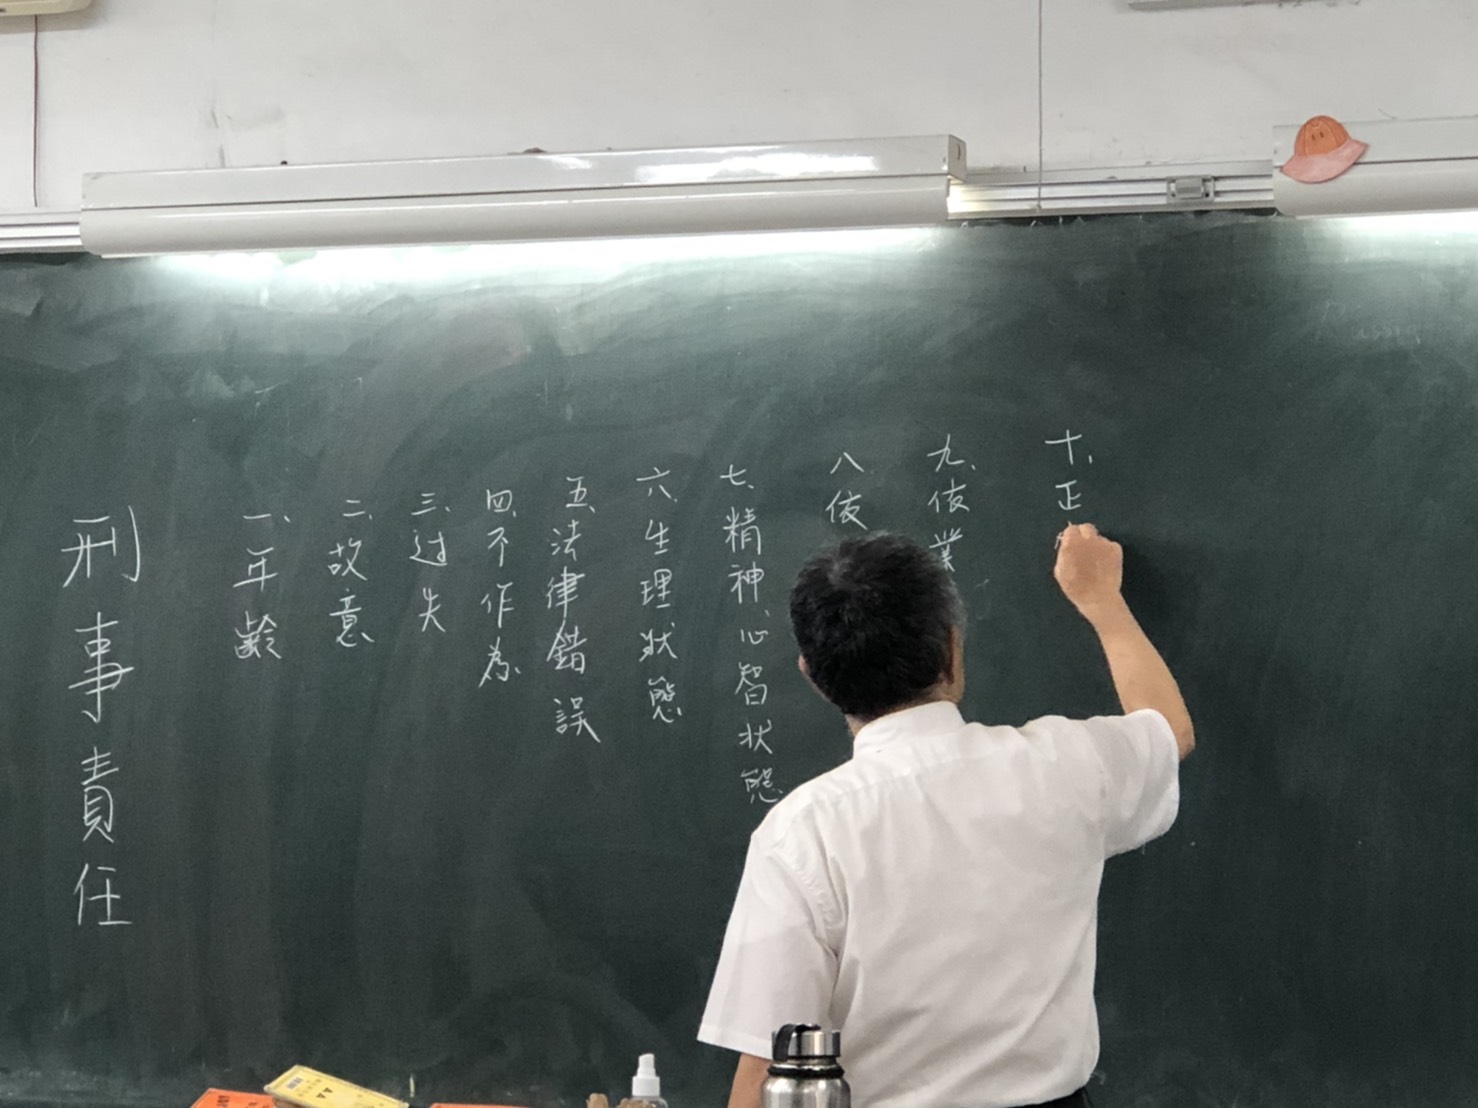 刑事責任
一、年齡
二、故意
三、过失
四、不作為
五、法律錯誤
六、生理狀態
七、精神、心智狀態
八、依
九、依業
十、正